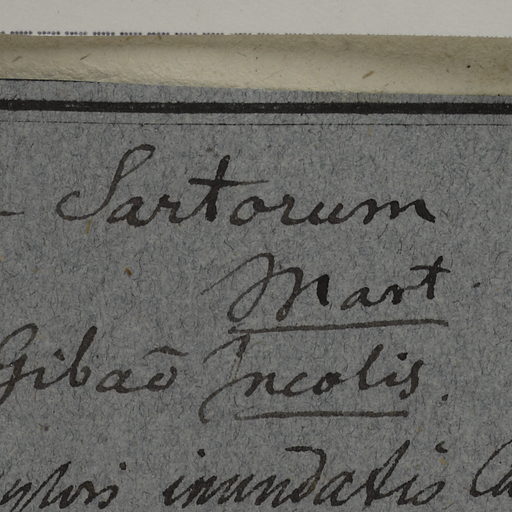 - Sartorum
Mart.
Gibaō Incolis.
inundatis